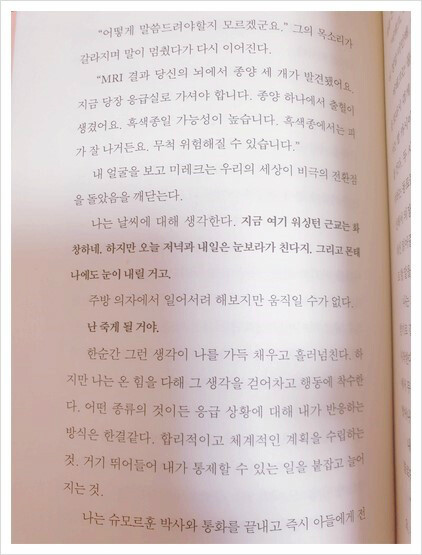 “어떻게 말씀드려야할지 모르겠군요.” 그의 목소리가
갈라지며 말이 멈췄다가 다시 이어진다.
“MRI 결과 당신의 뇌에서 종양 세 개가 발견됐어요.
지금 당장 응급실로 가셔야 합니다. 종양 하나에서 출혈이
생겼어요. 흑색종일 가능성이 높습니다. 흑색종에서는 피
가 잘 나거든요. 무척 위험해질 수 있습니다.”
내 얼굴을 보고 미레크는 우리의 세상이 비극의 전환점
을 돌았음을 깨닫는다.
나는 날씨에 대해 생각한다. 지금 여기 워싱턴 근교는 화
창하네. 하지만 오늘 저녁과 내일은 눈보라가 친다지. 그리고 몬태
나에도 눈이 내릴 거고.
주방 의자에서 일어서려 해보지만 움직일 수가 없다.
난 죽게 될 거야.
한순간 그런 생각이 나를 가득 채우고 흘러넘친다. 하
지만 나는 온 힘을 다해 그 생각을 걷어차고 행동에 착수한
다. 어떤 종류의 것이든 응급 상황에 대해 내가 반응하는
방식은 한결같다. 합리적이고 체계적인 계획을 수립하는
것. 거기 뛰어들어 내가 통제할 수 있는 일을 붙잡고 늘어
지는 것.
나는 슈모르훈 박사와 통화를 끝내고 즉시 아들에게 전